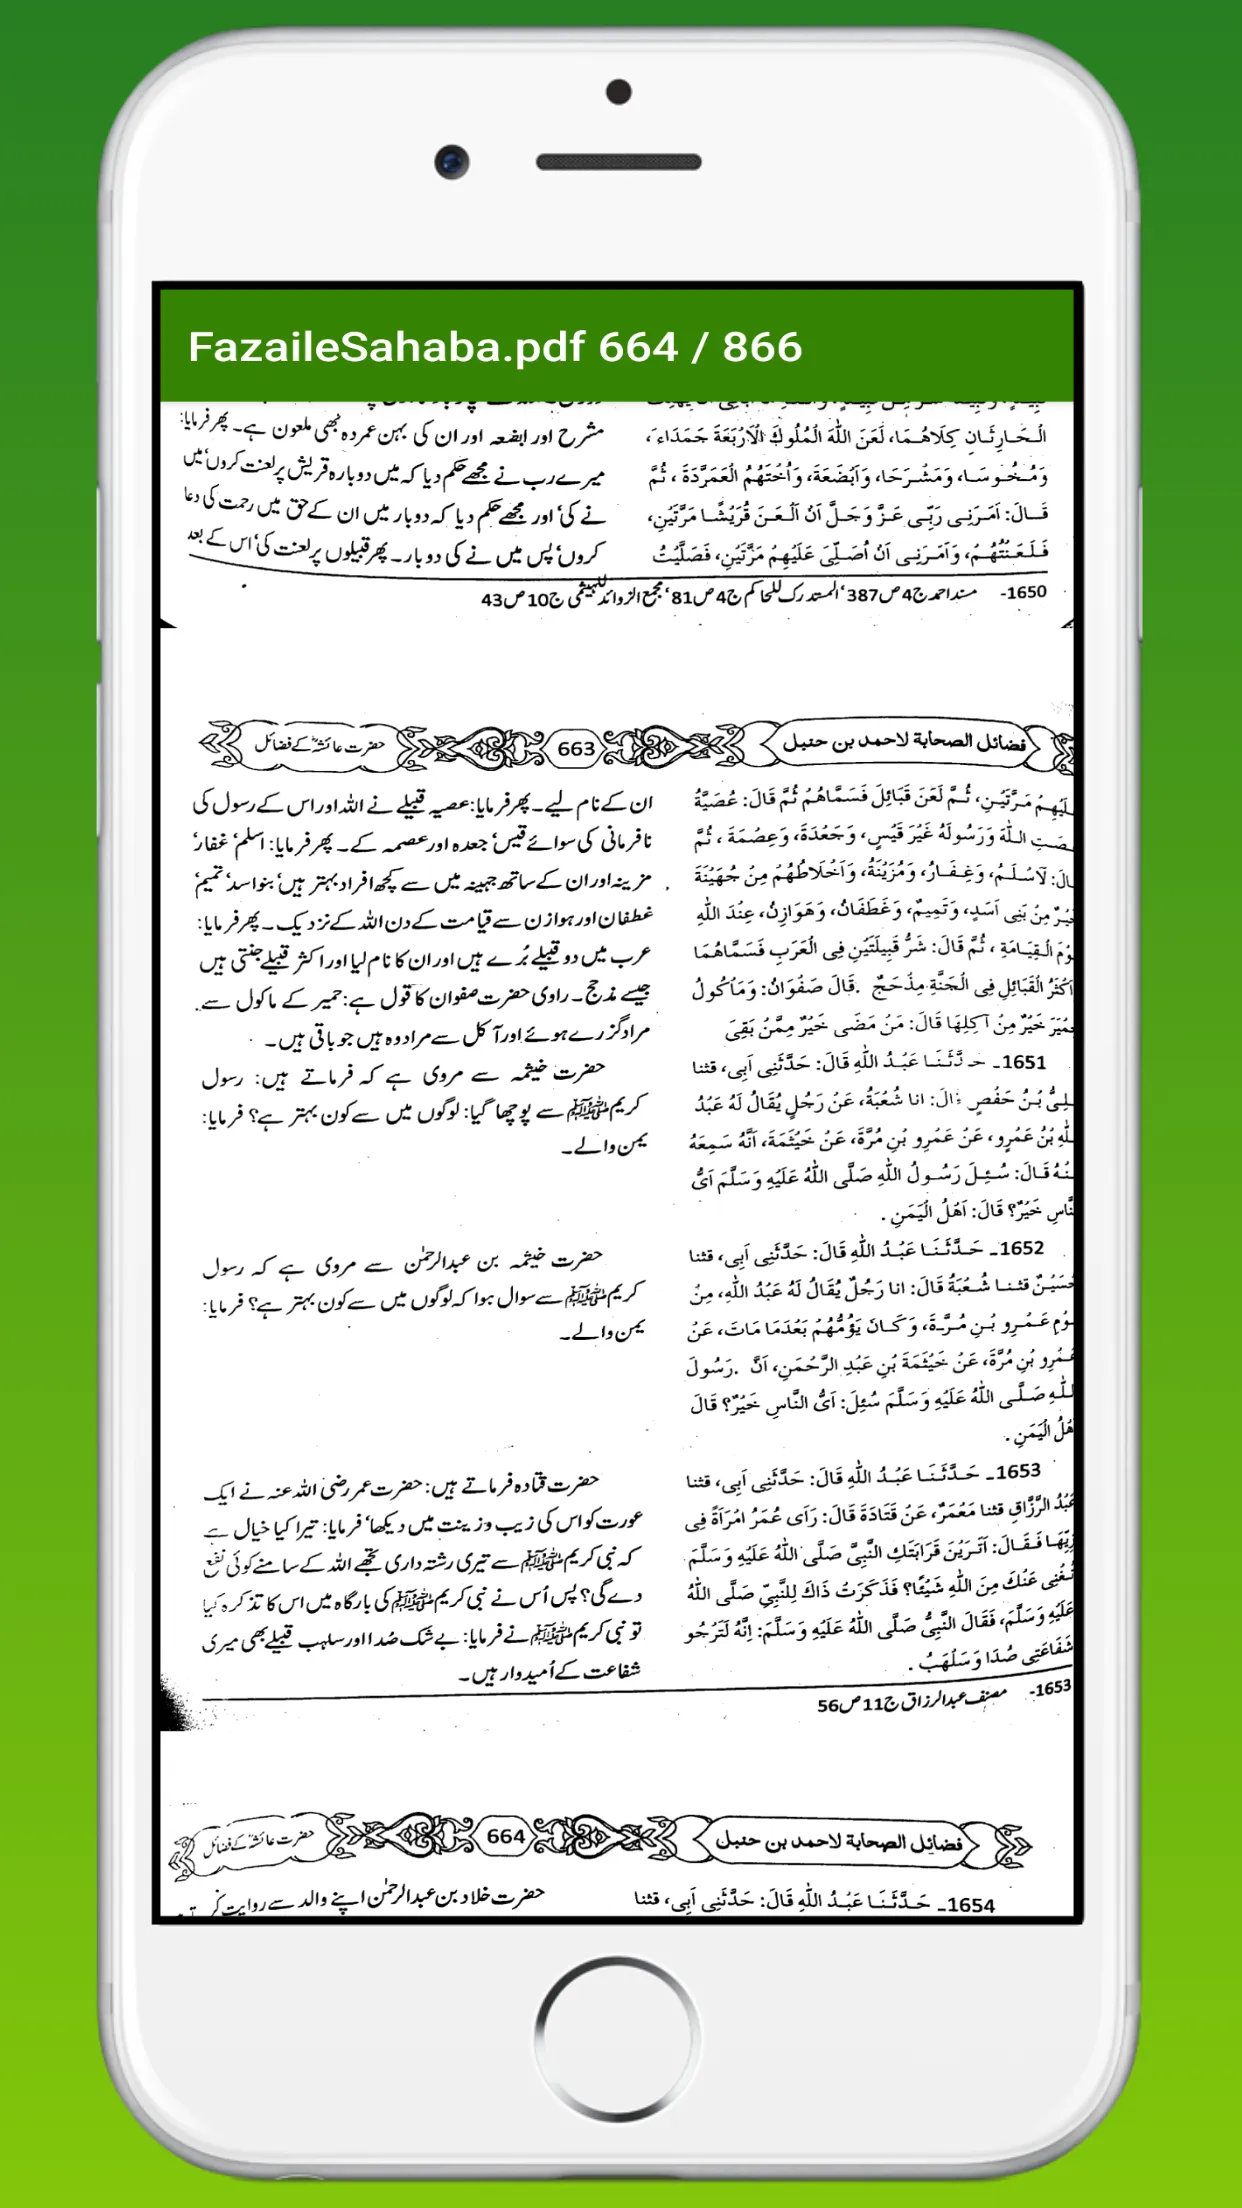 FazaileSahaba.pdf 664 / 866
الْحَارِثَانِ كِلَاهُمَا، لَعَنَ اللّٰهُ الْمُلُوكَ الْاَرْبَعَةَ جَمَدَاءَ،
وَمُخُوسَا، وَمَشْرَحَا، وَاَبْضَعَةَ، وَاُخْتَهُمُ الْعَمَرَّدَةَ، ثُمَّ
قَالَ: اَمَرَنِى رَبِّى عَزَّ وَجَلَّ اَنْ اَلْعَنَ قُرَيْشًا مَرَّتَيْنِ،
فَلَعَنْتُهُمْ، وَاَمَرَنِى اَنْ اُصَلِّىَ عَلَيْهِمْ مَرَّتَيْنِ، فَصَلَّيْتُ
مشرح اور ابضعہ اور ان کی بہن عمردہ بھی ملعون ہے۔ پھر فرمایا:
میرے رب نے مجھے حکم دیا کہ میں دوبارہ قریش پر لعنت کروں' میں
نے کی' اور مجھے حکم دیا کہ دو بار میں ان کے حق میں رحمت کی دعا
کروں' پس میں نے کی دو بار۔ پھر قبیلوں پر لعنت کی' اس کے بعد
1650- مسند احمد ج4 ص387' المستدرک للحاکم ج4 ص81' مجمع الزوائد للہیثمی ج10 ص43
فضائل الصحابة لاحمد بن حنبل 663 حضرت عائشہ کے فضائل
عَلَيْهِمْ مَرَّتَيْنِ، ثُمَّ لَعَنَ قَبَائِلَ فَسَمَّاهُمْ ثُمَّ قَالَ: عُصَيَّةُ
عَصَتِ اللّٰهَ وَرَسُولَهُ غَيْرَ قَيْسٍ، وَجَعْدَةَ، وَعِصْمَةَ، ثُمَّ
قَالَ: لَاَسْلَمُ، وَغِفَارُ، وَمُزَيْنَةُ، وَاَخْلَاطُهُمْ مِنْ جُهَيْنَةَ
خَيْرٌ مِنْ بَنِى اَسَدٍ، وَتَمِيمٍ، وَغَطَفَانَ، وَهَوَازِنَ، عِنْدَ اللّٰهِ
يَوْمَ الْقِيَامَةِ، ثُمَّ قَالَ: شَرُّ قَبِيلَتَيْنِ فِى الْعَرَبِ فَسَمَّاهُمَا
وَاَكْثَرُ الْقَبَائِلِ فِى الْجَنَّةِ مِذْحَجٌ. قَالَ صَفْوَانُ: وَمَأْكُولُ
حِمْيَرَ خَيْرٌ مِنْ آكِلِهَا قَالَ: مَنْ مَضَى خَيْرٌ مِمَّنْ بَقِىَ
ان کے نام لیے۔ پھر فرمایا: عصیہ قبیلے نے اللہ اور اس کے رسول کی
نافرمانی کی سوائے قیس' جعدہ اور عصمہ کے۔ پھر فرمایا: اسلم' غفار'
مزینہ اور ان کے ساتھ جہینہ میں سے کچھ افراد بہتر ہیں' بنو اسد' تمیم'
غطفان اور ہوازن سے قیامت کے دن اللہ کے نزدیک۔ پھر فرمایا:
عرب میں دو قبیلے بُرے ہیں اور ان کا نام لیا اور اکثر قبیلے جنتی ہیں
جیسے مذحج۔ راوی حضرت صفوان کا قول ہے: حمیر کے ماکول سے
مراد گزرے ہوئے اور آکل سے مراد وہ ہیں جو باقی ہیں۔
1651۔ حَدَّثَنَا عَبْدُ اللّٰهِ قَالَ: حَدَّثَنِى اَبِى، قثنا
عَلِىُّ بْنُ حَفْصٍ قَالَ: انا شُعْبَةُ، عَنْ رَجُلٍ يُقَالُ لَهُ عَبْدُ
اللّٰهِ بْنُ عَمْرٍو، عَنْ عَمْرِو بْنِ مُرَّةَ، عَنْ خَيْثَمَةَ، اَنَّهُ سَمِعَهُ
مِنْهُ قَالَ: سُئِلَ رَسُولُ اللّٰهِ صَلَّى اللّٰهُ عَلَيْهِ وَسَلَّمَ اَىُّ
النَّاسِ خَيْرٌ؟ قَالَ: اَهْلُ الْيَمَنِ.
حضرت خیثمہ سے مروی ہے کہ فرماتے ہیں: رسول
کریم ﷺ سے پوچھا گیا: لوگوں میں سے کون بہتر ہے؟ فرمایا:
یمن والے۔
1652۔ حَدَّثَنَا عَبْدُ اللّٰهِ قَالَ: حَدَّثَنِى اَبِى، قثنا
حُسَيْنٌ قثنا شُعْبَةُ قَالَ: انا رَجُلٌ يُقَالُ لَهُ عَبْدُ اللّٰهِ، مِنْ
قَوْمِ عَمْرِو بْنِ مُرَّةَ، وَكَانَ يَؤُمُّهُمْ بَعْدَمَا مَاتَ، عَنْ
عَمْرِو بْنِ مُرَّةَ، عَنْ خَيْثَمَةَ بْنِ عَبْدِ الرَّحْمَنِ، اَنَّ رَسُولَ
اللّٰهِ صَلَّى اللّٰهُ عَلَيْهِ وَسَلَّمَ سُئِلَ: اَىُّ النَّاسِ خَيْرٌ؟ قَالَ
اَهْلُ الْيَمَنِ.
حضرت خیثمہ بن عبدالرحمٰن سے مروی ہے کہ رسول
کریم ﷺ سے سوال ہوا کہ لوگوں میں سے کون بہتر ہے؟ فرمایا:
یمن والے۔
1653۔ حَدَّثَنَا عَبْدُ اللّٰهِ قَالَ: حَدَّثَنِى اَبِى، قثنا
عَبْدُ الرَّزَّاقِ قثنا مَعْمَرٌ، عَنْ قَتَادَةَ قَالَ: رَاَى عُمَرُ امْرَاَةً فِى
زِيِّهَا فَقَالَ: اَتَرَيْنَ قَرَابَتَكِ النَّبِىَّ صَلَّى اللّٰهُ عَلَيْهِ وَسَلَّمَ
تُغْنِى عَنْكَ مِنَ اللّٰهِ شَيْئًا؟ فَذَكَرَتْ ذَاكَ لِلنَّبِىِّ صَلَّى اللّٰهُ
عَلَيْهِ وَسَلَّمَ، فَقَالَ النَّبِىُّ صَلَّى اللّٰهُ عَلَيْهِ وَسَلَّمَ: اِنَّهُ لَتَرْجُو
شَفَاعَتِى صُدَا وَسَلْهَبُ.
حضرت قتادہ فرماتے ہیں: حضرت عمر رضی اللہ عنہ نے ایک
عورت کو اس کی زیب و زینت میں دیکھا' فرمایا: تیرا کیا خیال ہے
کہ نبی کریم ﷺ سے تیری رشتہ داری تجھے اللہ کے سامنے کوئی نفع
دے گی؟ پس اُس نے نبی کریم ﷺ کی بارگاہ میں اس کا تذکرہ کیا
تو نبی کریم ﷺ نے فرمایا: بے شک صُدا اور سلہب قبیلے بھی میری
شفاعت کے اُمیدوار ہیں۔
1653- مصنف عبدالرزاق ج11 ص56
فضائل الصحابة لاحمد بن حنبل 664 حضرت عائشہ کے فضائل
1654۔ حَدَّثَنَا عَبْدُ اللّٰهِ قَالَ: حَدَّثَنِى اَبِى، قثنا
حضرت خلاد بن عبدالرحمٰن اپنے والد سے روایت کرتے